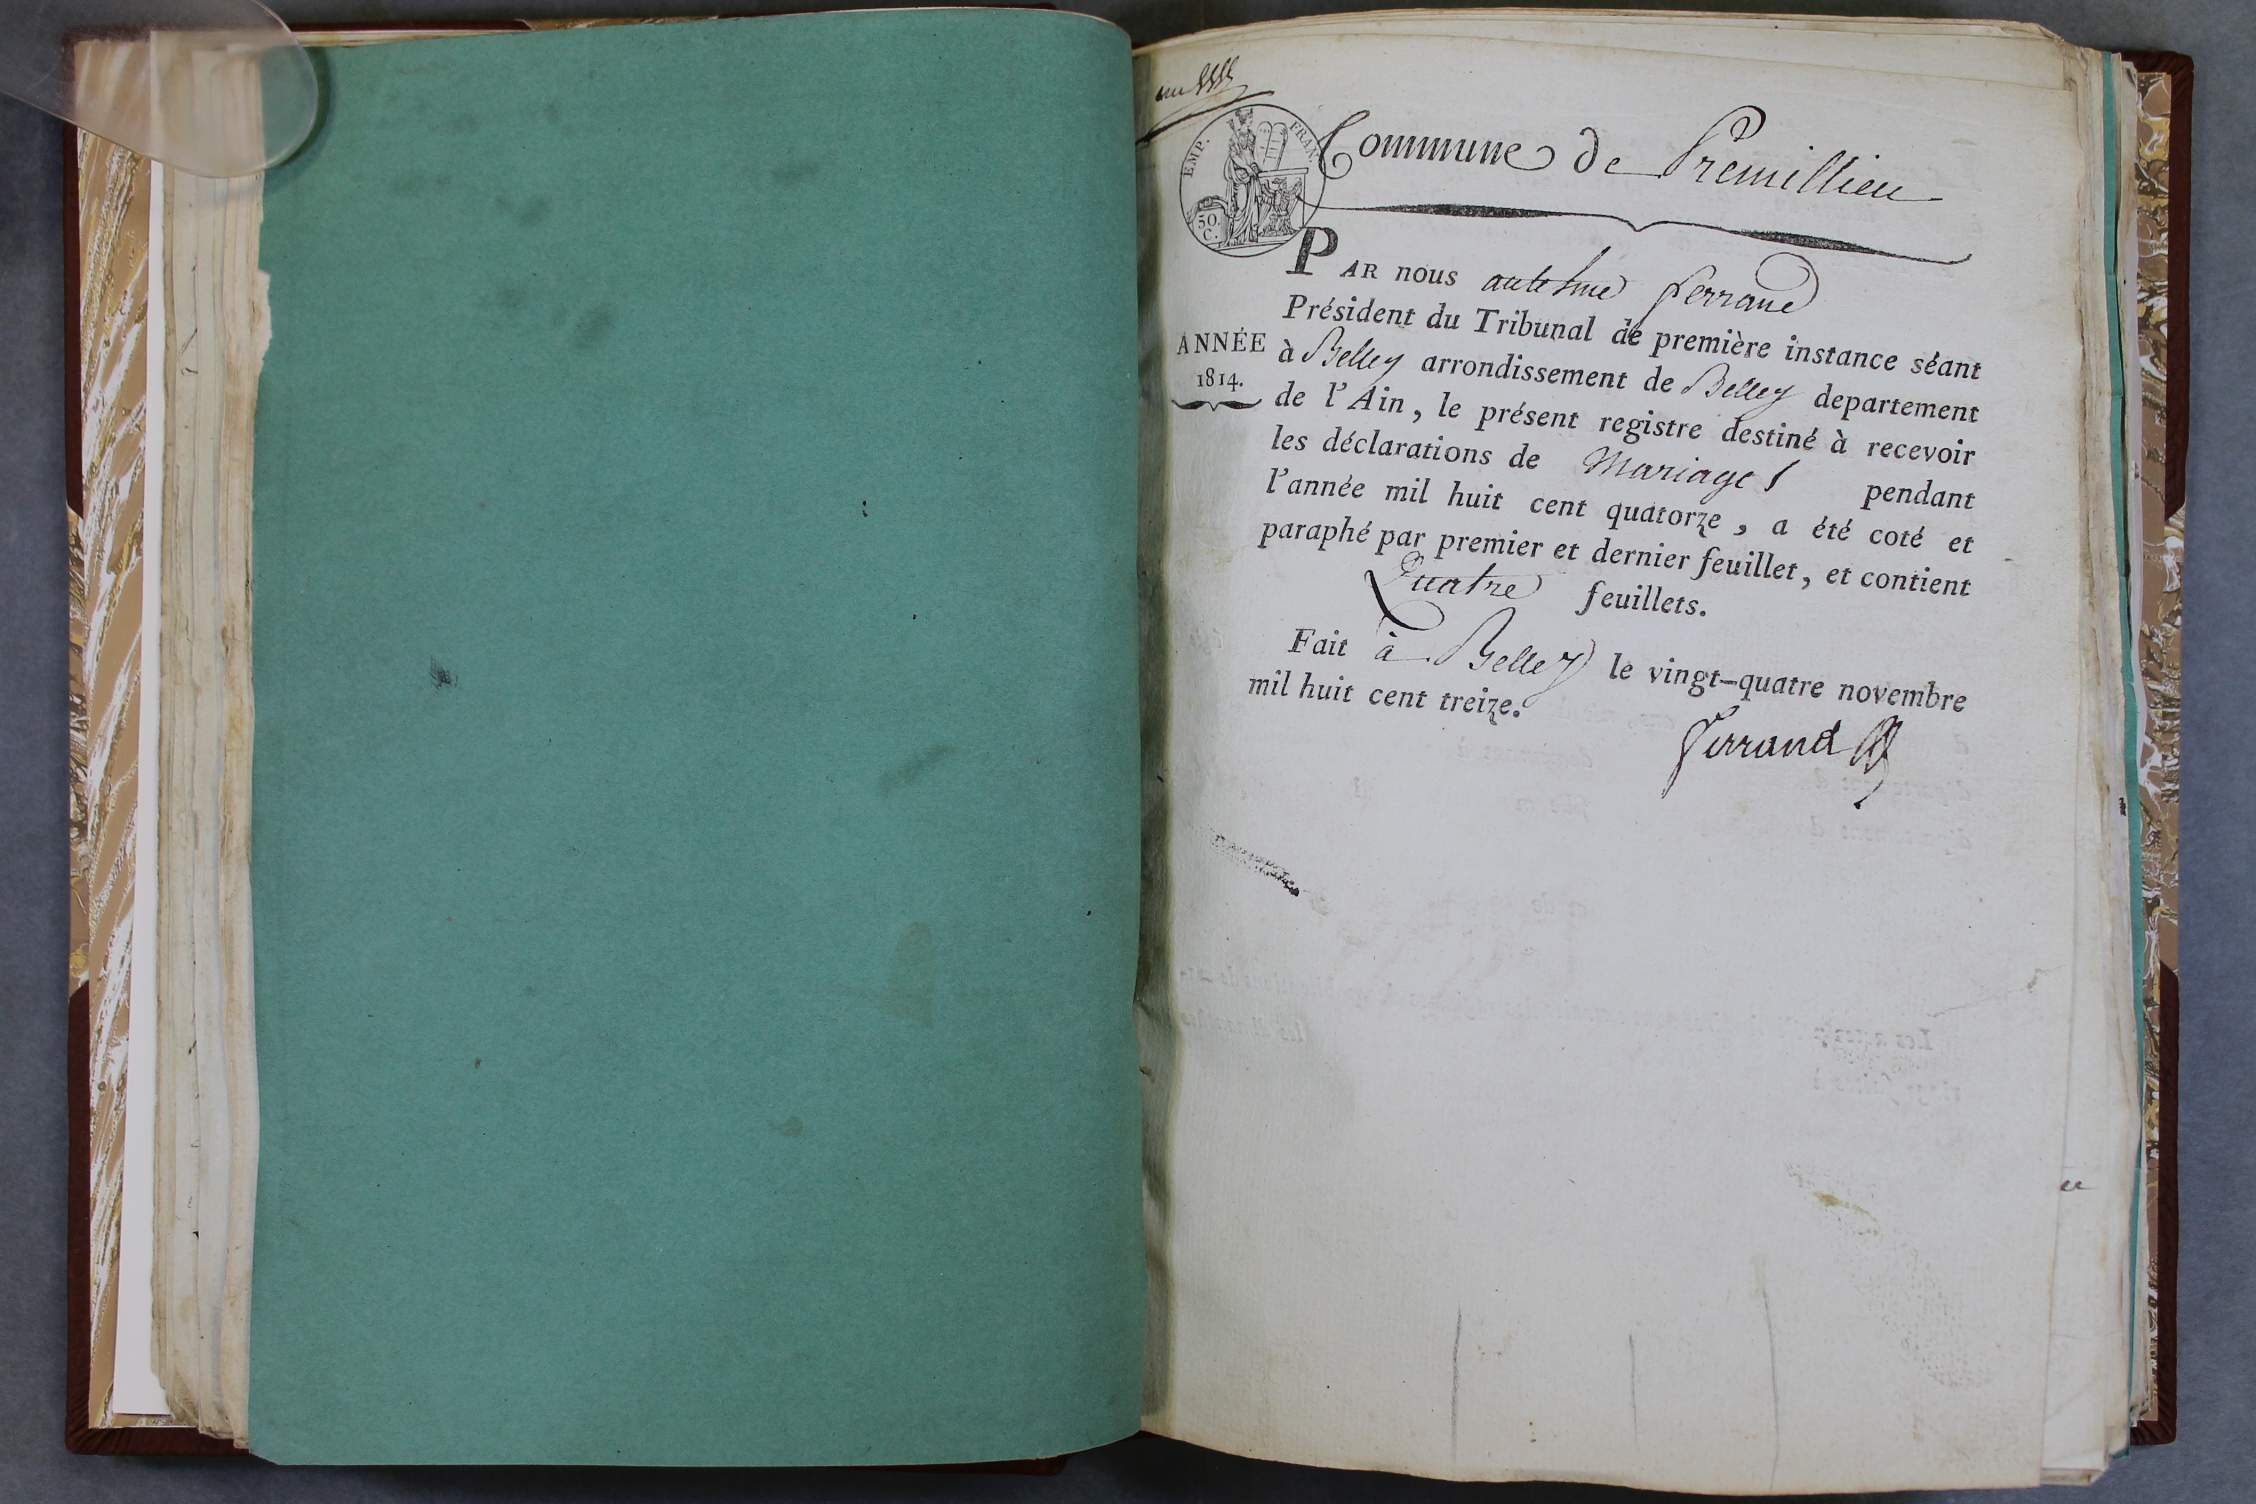 EMP. FRAN.
50.
C.
Commune de Premillieu
PAR nous antelme ferrand
Président du Tribunal de première instance séant
ANNÉE
1814.
à Belley arrondissement de Belley departement
de l'Ain, le présent registre destiné à recevoir
les déclarations de Mariages pendant
l'année mil huit cent quatorze, a été coté et
paraphé par premier et dernier feuillet, et contient
Quatre feuillets.
Fait à Belley le vingt-quatre novembre
mil huit cent treize.
ferrand